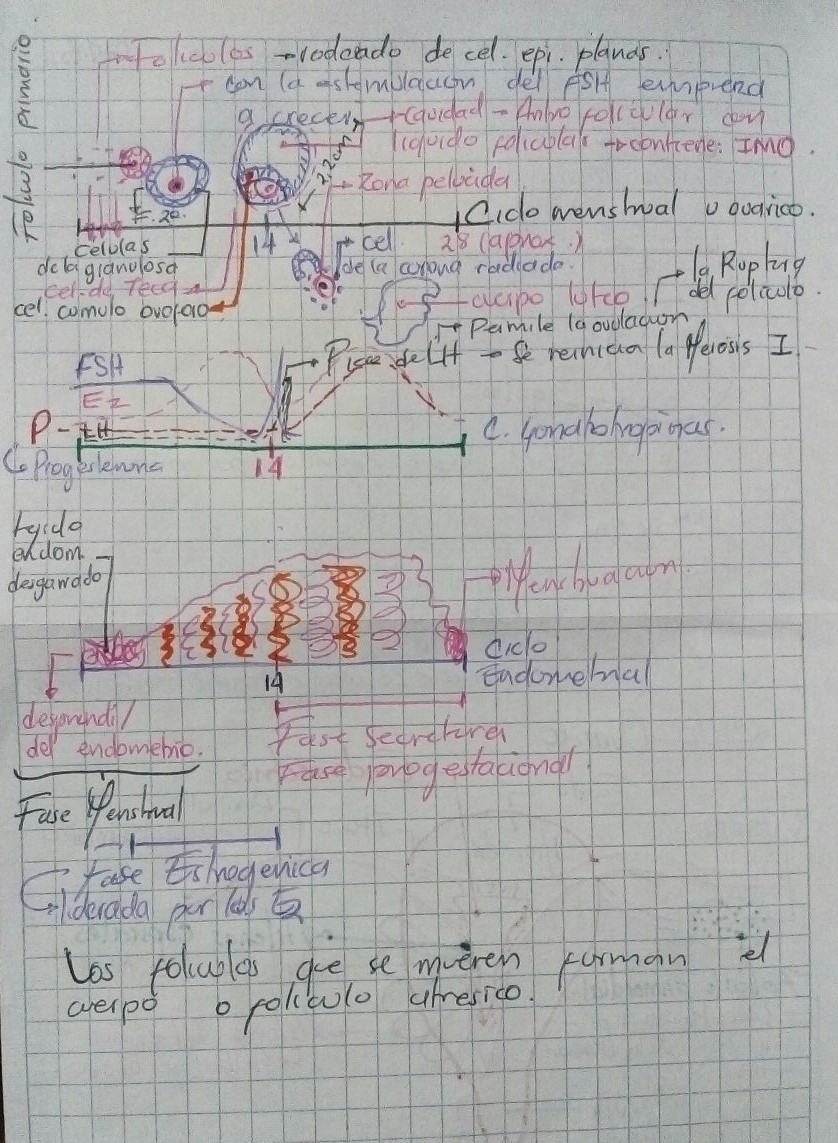 Folículo primario.
Folículos → rodeado de cel. epi. planas.
con la estimulación del FSH empieza
a crecer
cavidad - Antro folicular con
líquido folicular → contiene: IMO.
2,2cm
Zona pelúcida
F. 2º.
Ciclo menstrual u ovárico.
14
28 (aprox.)
celulas
de la granulosa
cel. de Teca
cel. cúmulo ovoforo
cel.
de la corona radiada.
cuerpo lúteo
la Ruptura
del folículo.
Permite la ovulación
Pico de LH → Se reinicia la Meiosis I.
FSH
E2
P - LH
Progesterona
14
C. Gonadotropinas.
tejido
endom.
desgarrado
Menstruación.
Ciclo
Endometrial
14
desprendi/
del endometrio.
Fase secretora
Fase progestacional
Fase Menstrual
Fase Estrogenica
liderada por los E2
Los foliculos que se mueren forman el
cuerpo o folículo atresico.